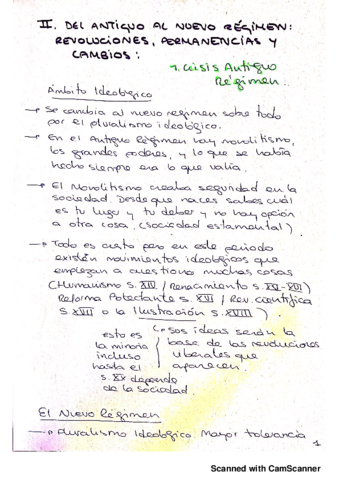 II. DEL ANTIGUO AL NUEVO RÉGIMEN:
REVOLUCIONES, PERMANENCIAS Y
CAMBIOS:
1. Crisis Antiguo
Régimen.
Ámbito Ideológico
→ Se cambia al nuevo regimen sobre todo
por el pluralismo ideológico.
→ En el Antiguo Régimen hay monolitismo,
los grandes poderes, y lo que se había
hecho siempre era lo que valía.
→ El Monolitismo creaba seguridad en la
sociedad. Desde que naces sabes cuál
es tu lugar y tu deber y no hay opción
a otra cosa. (sociedad estamental)
→ Todo es cierto pero en este periodo
existen movimientos ideológicos que
empiezan a cuestionar muchas cosas
(Humanismo s. XIV / Renacimiento s. XV-XVI)
Reforma Protestante s. XVI / Rev. científica
s. XVII o la Ilustración s. XVIII)
esto es
la minoria
incluso
hasta el
s. XX depende
de la sociedad.
↳ esas ideas serán la
base de las revoluciones
liberales que
aparecen.
El Nuevo Régimen
→ Pluralismo Ideológico. Mayor tolerancia
1
Scanned with CamScanner